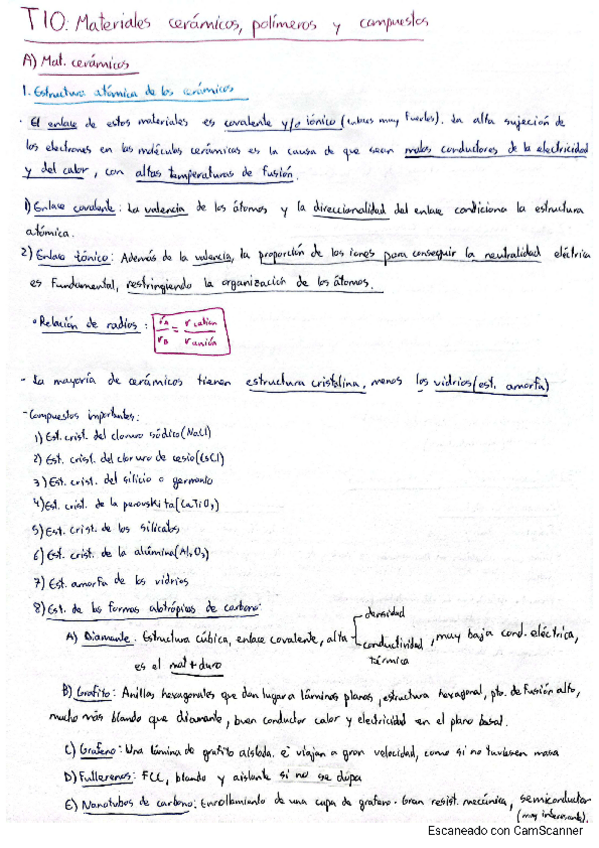 T10: Materiales cerámicos, polímeros y compuestos
A) Mat. cerámicos
1. Estructura atómica de los cerámicos
· El enlace de estos materiales es covalente y/o iónico (enlaces muy fuertes). La alta sujeción de
los electrones en las moléculas cerámicas es la causa de que sean malos conductores de la electricidad
y del calor, con altas temperaturas de fusión.
1) Enlace covalente: La valencia de los átomos y la direccionalidad del enlace condiciona la estructura
atómica.
2) Enlace iónico: Además de la valencia, la proporción de los iones para conseguir la neutralidad eléctrica
es fundamental, restringiendo la organización de los átomos.
• Relación de radios: rA/rB = r catión/r anión
- La mayoría de cerámicos tienen estructura cristalina, menos los vidrios (est. amorfa)
- Compuestos importantes:
1) Est. crist. del cloruro sódico (NaCl)
2) Est. crist. del cloruro de cesio (CsCl)
3) Est. crist. del silicio o germanio
4) Est. crist. de la perovskita (CaTiO3)
5) Est. crist. de los silicatos
6) Est. crist. de la alúmina (Al2O3)
7) Est. amorfa de los vidrios
8) Est. de las formas alotrópicas de carbono:
A) Diamante. Estructura cúbica, enlace covalente, alta densidad, conductividad térmica, muy baja cond. eléctrica,
es el mat + duro
B) Grafito: Anillos hexagonales que dan lugar a láminas planas, estructura hexagonal, pto. de fusión alto,
mucho más blando que diamante, buen conductor calor y electricidad en el plano basal.
C) Grafeno: Una lámina de grafito aislada. e- viajan a gran velocidad, como si no tuviesen masa
D) Fullerenos: FCC, blando y aislante si no se dopa
E) Nanotubos de carbono: Enrollamiento de una capa de grafeno. Gran resist. mecánica, semiconductor
(muy interesante).
Escaneado con CamScanner